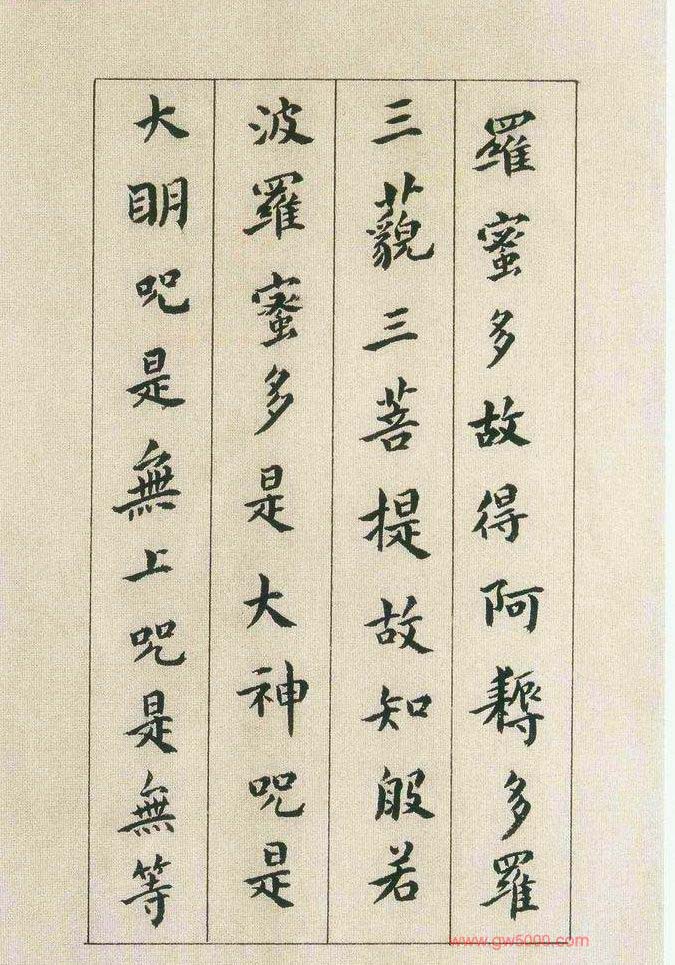 羅蜜多故得阿耨多羅
三藐三菩提故知般若
波羅蜜多是大神呪是
大明呪是無上呪是無等
www.gw5000.com